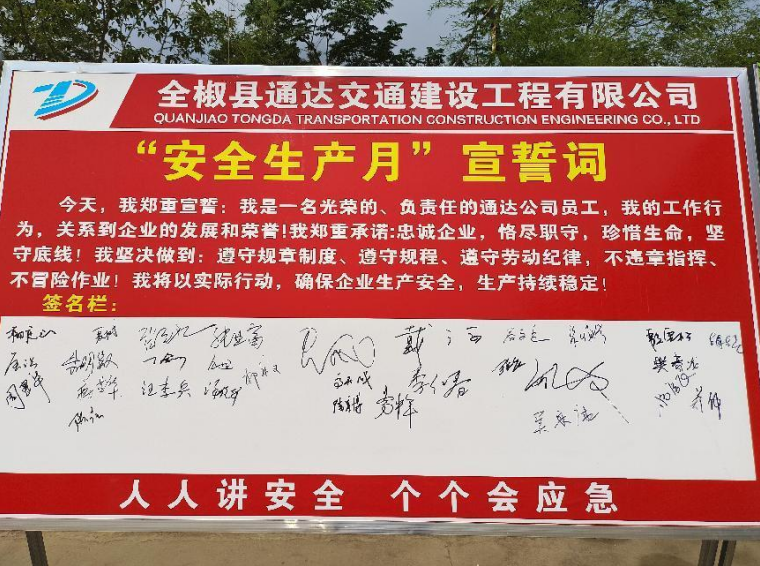 全椒县通达交通建设工程有限公司
QUANJIAO TONGDA TRANSPORTATION CONSTRUCTION ENGINEERING CO., LTD
“安全生产月”宣誓词
今天，我郑重宣誓：我是一名光荣的、负责任的通达公司员工，我的工作行
为，关系到企业的发展和荣誉!我郑重承诺:忠诚企业，恪尽职守，珍惜生命，坚
守底线！我坚决做到：遵守规章制度、遵守规程、遵守劳动纪律，不违章指挥、
不冒险作业！我将以实际行动，确保企业生产安全，生产持续稳定！
签名栏：
人人讲安全 个个会应急